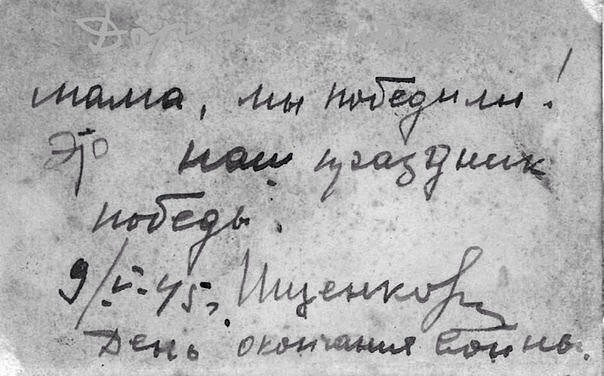 мама, мы победили!
Это наш праздник
победы.
9/V-45г.
День окончания войны.